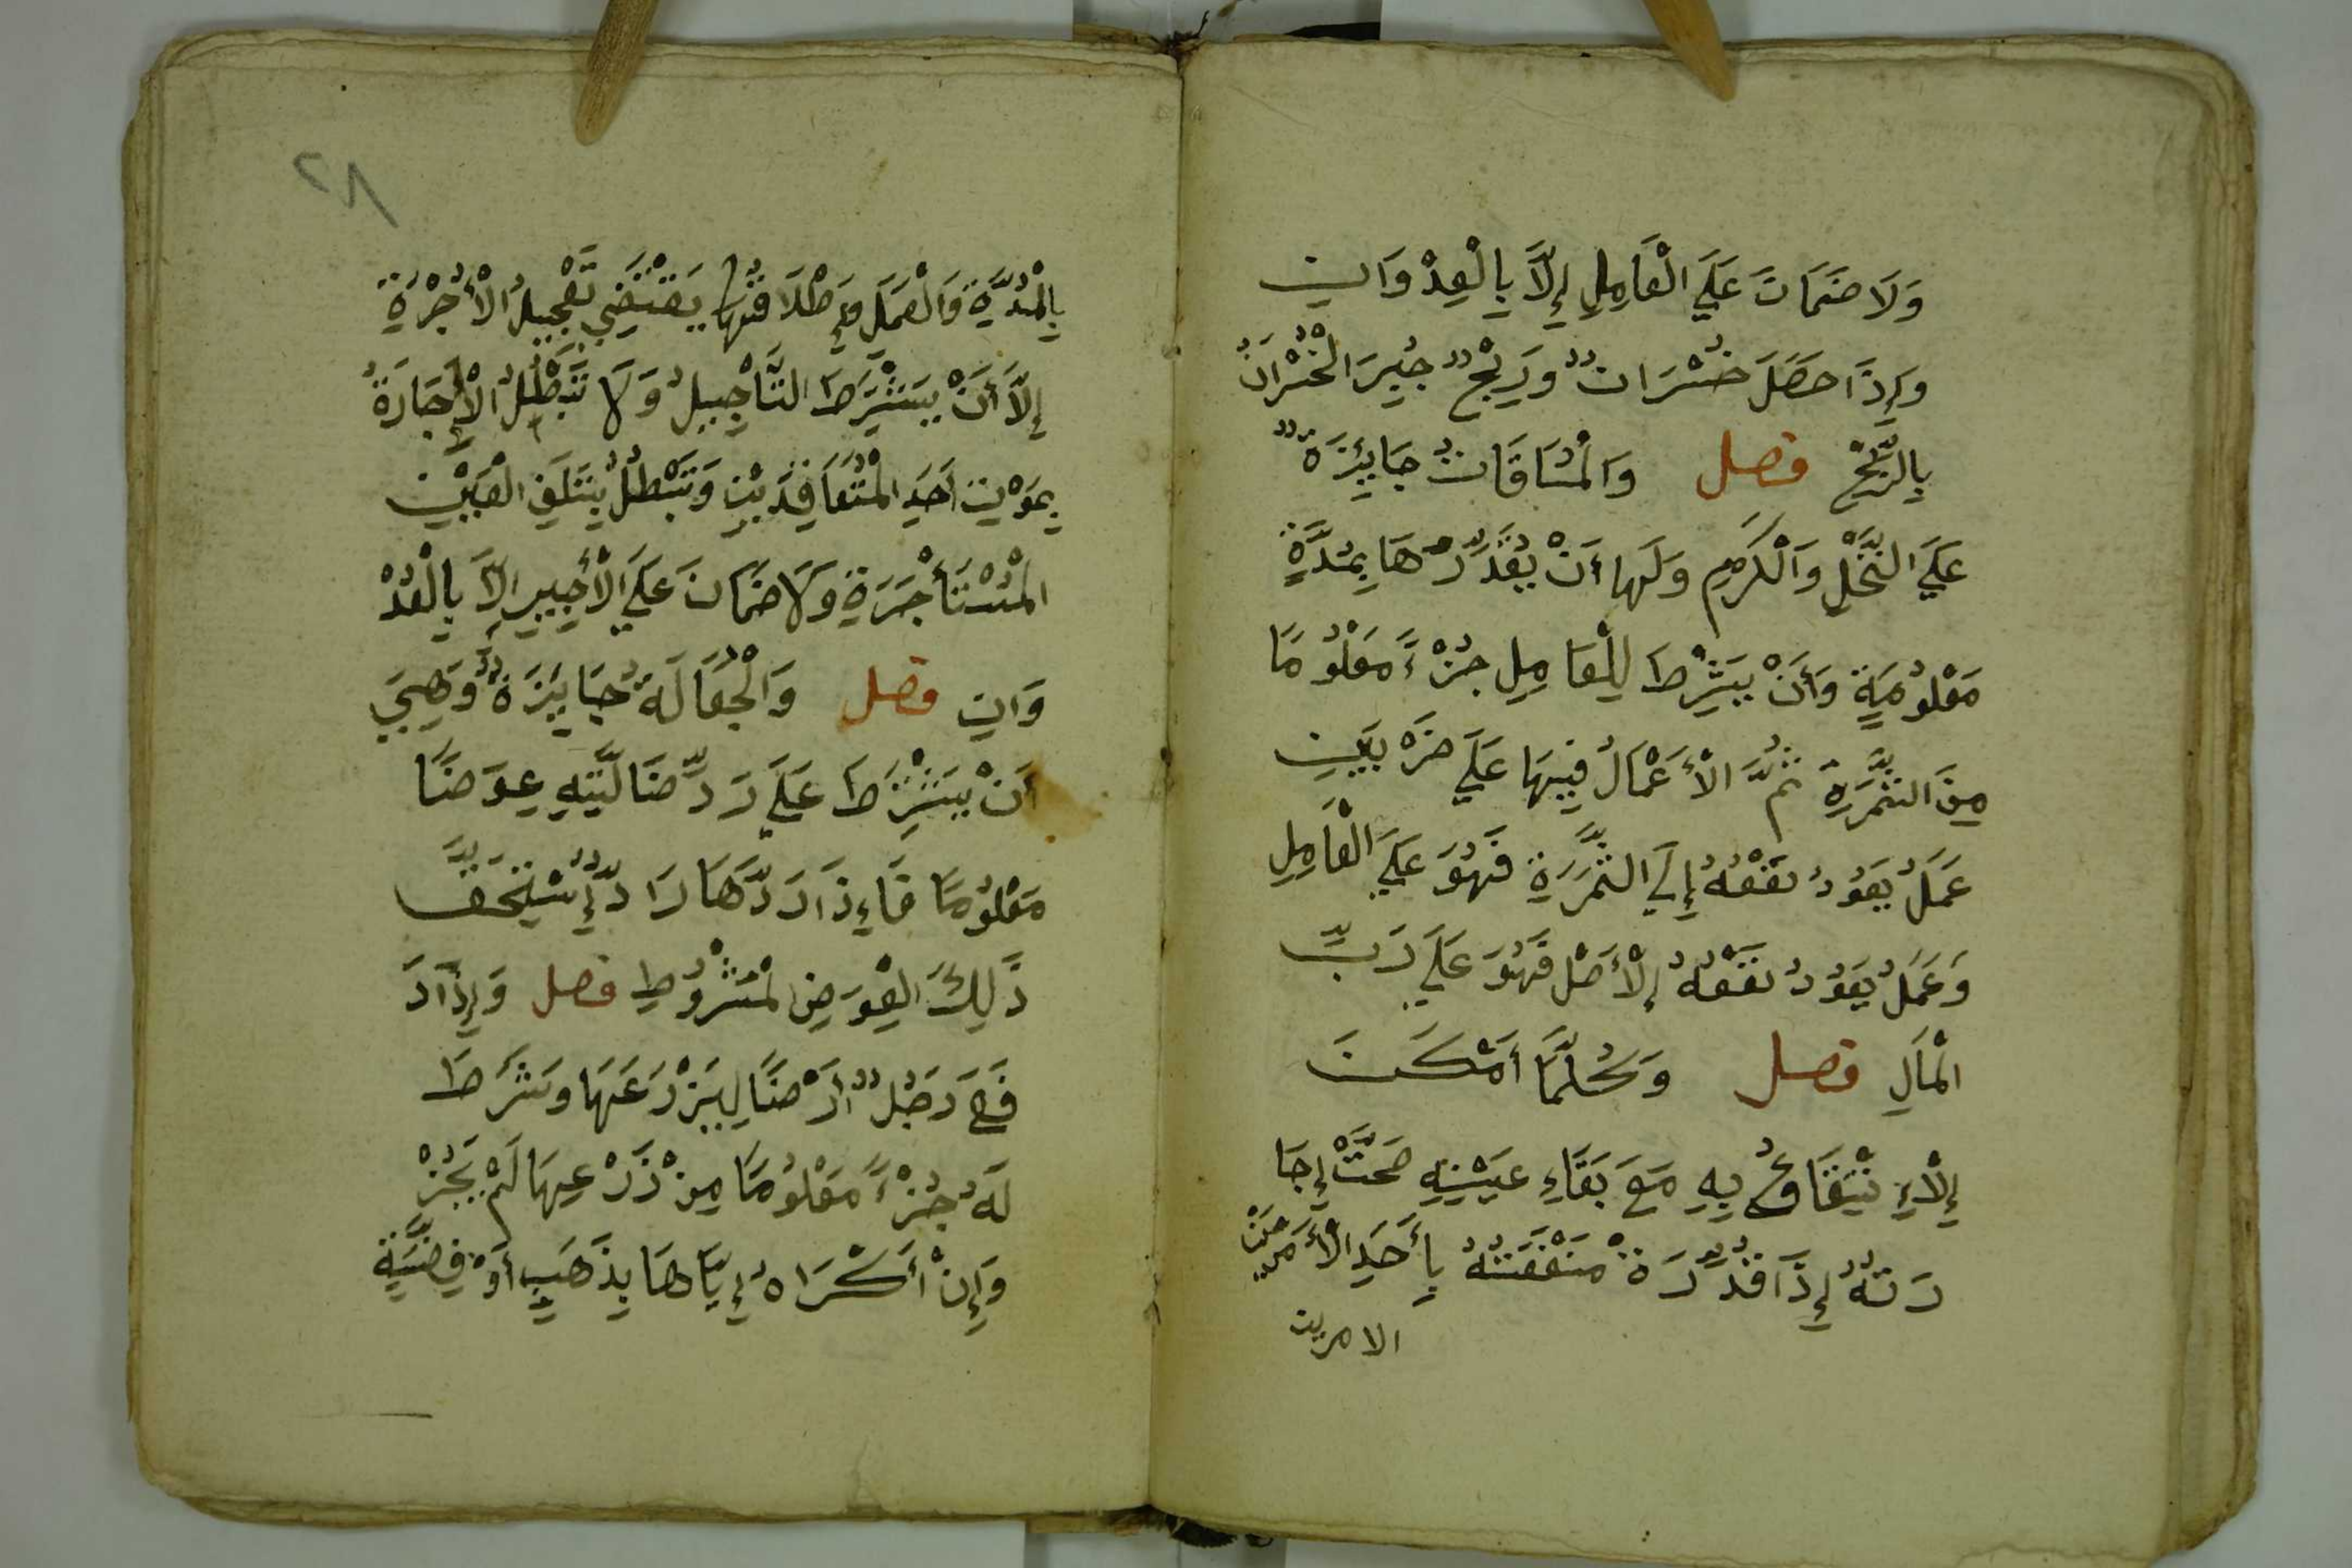 وَلَا ضَمَانَ عَلَي الْعَامِلِ إِلَّا بِالْعِدْوَانِ
وَإِذَا حَصَلَ خُسْرَانٌ وَرِبْحٌ جُبِرَ الْخُسْرَانُ
بِالرِّبْحِ فصل وَالْمُسَاقَاتُ جَايِزَةٌ
عَلَي النَّخْلِ وَالْكَرَمِ وَلَهَا أَنْ يُقَدِّرَهَا بِمُدَّةٍ
مَعْلُومَةٍ وَأَنْ يَشْرِطَ لِلْعَامِلِ جُزْءً مَعْلُومًا
مِنَ الثَّمَرَةِ ثُمَّ الْأَعْمَالُ فِيهَا عَلَي ضَرْبَيْنِ
عَمَلُ يَعُودُ نَفْعُهُ إِلَي الثَّمَرَةِ فَهُوَ عَلَي الْعَامِلِ
وَعَمَلُ يَعُودُ نَفْعُهُ إِلْأَصْلِ فَهُوَ عَلَي رَبِّ
الْمَالِ فصل وَكُلَّمَا أَمْكَنَ
إِلْاِنْتِفَاعُ بِهِ مَعَ بَقَاءِ عَيْنِهِ صَحَّتْ إِجَا
رَتُهُ إِذَا قُدِّرَةْ مَنْفَعَتُهُ بِأَحَدِ الْأَمْرَيْنِ
الامرين
٢٨
بِالْمُدَّةِ وَالْعَمَلِ وَإِطْلَاقُهَا يَقْتَضِي تَعْجِيلُ الْأُجْرَةِ
إِلَّا أَنْ يَشْتَرِطَ التَّأْجِيلُ وَلَا تَبْطُلُ الْإِجَارَةُ
بِمَوْتِ أَحَدِ الْمُتَعَاقِدَيْنِ وَتَبْطُلُ بِتَلَفِ الْعَيْنِ
الْمُسْتَأْجَرَةِ وَلَا ضَمَانَ عَلَي الْأَجِيرِ إِلَّا بِالْعُدْ
وَانِ فصل وَالْجُعَالَةُ جَايِزَةٌ وَهِيَ
أَنْ يَشْتَرِطَ عَلَي رَدِّ ضَالَّتِهِ عِوَضًا
مَعْلُومًا فَاءِذَا رَدَّهَا رَادٌّ إِسْتَحَقَّ
ذَلِكَ الْعِوَضِ الْمَشْرُوطِ فصل وَإِذَا دَ
فَعَ رَجُلٌ أَرْضًا لِيَزْرَعَهَا وَشَرَطَ
لَهُ جُزْءً مَعْلُومًا مِنْ زَرْعِهَا لَمْ يَجُزْ
وَإِنْ أَكْرَاهُ إِيَّاهَا بِذَهَبٍ أَوْ فِضَّةٍ